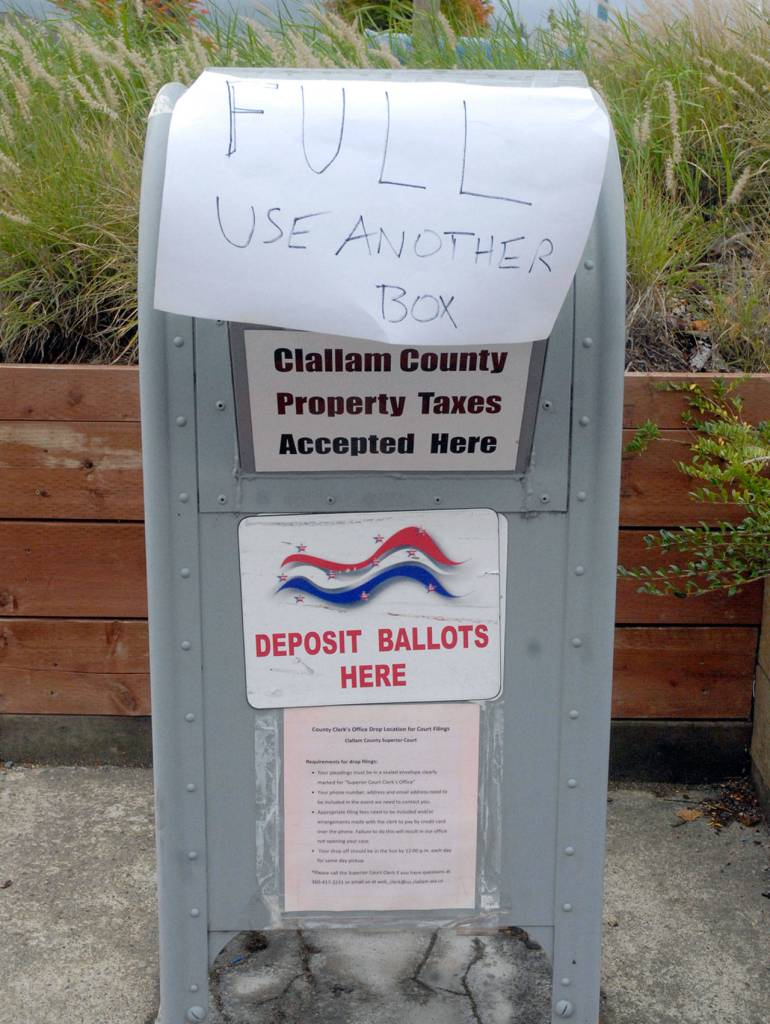 FULL
USE ANOTHER
BOX
Clallam County
Property Taxes
Accepted Here
DEPOSIT BALLOTS
HERE
County Clerk's Office Drop Location for Court Filings
Clallam County Superior Court
Requirements for drop filings:
• Your pleadings must be in a sealed envelope clearly
marked for "Superior Court Clerk's Office"
• Your phone number, address and email address need to
be included in the event we need to contact you.
• Appropriate filing fees need to be included and/or
arrangements made with the clerk to pay by credit card
over the phone. Failure to do this will result in our office
not opening your case.
• Your drop off should be in the box by 12:00 p.m. each day
for same day pickup.
*Please call the Superior Court Clerk if you have questions at
360-417-2231 or email us at web_clerk@co.clallam.wa.us